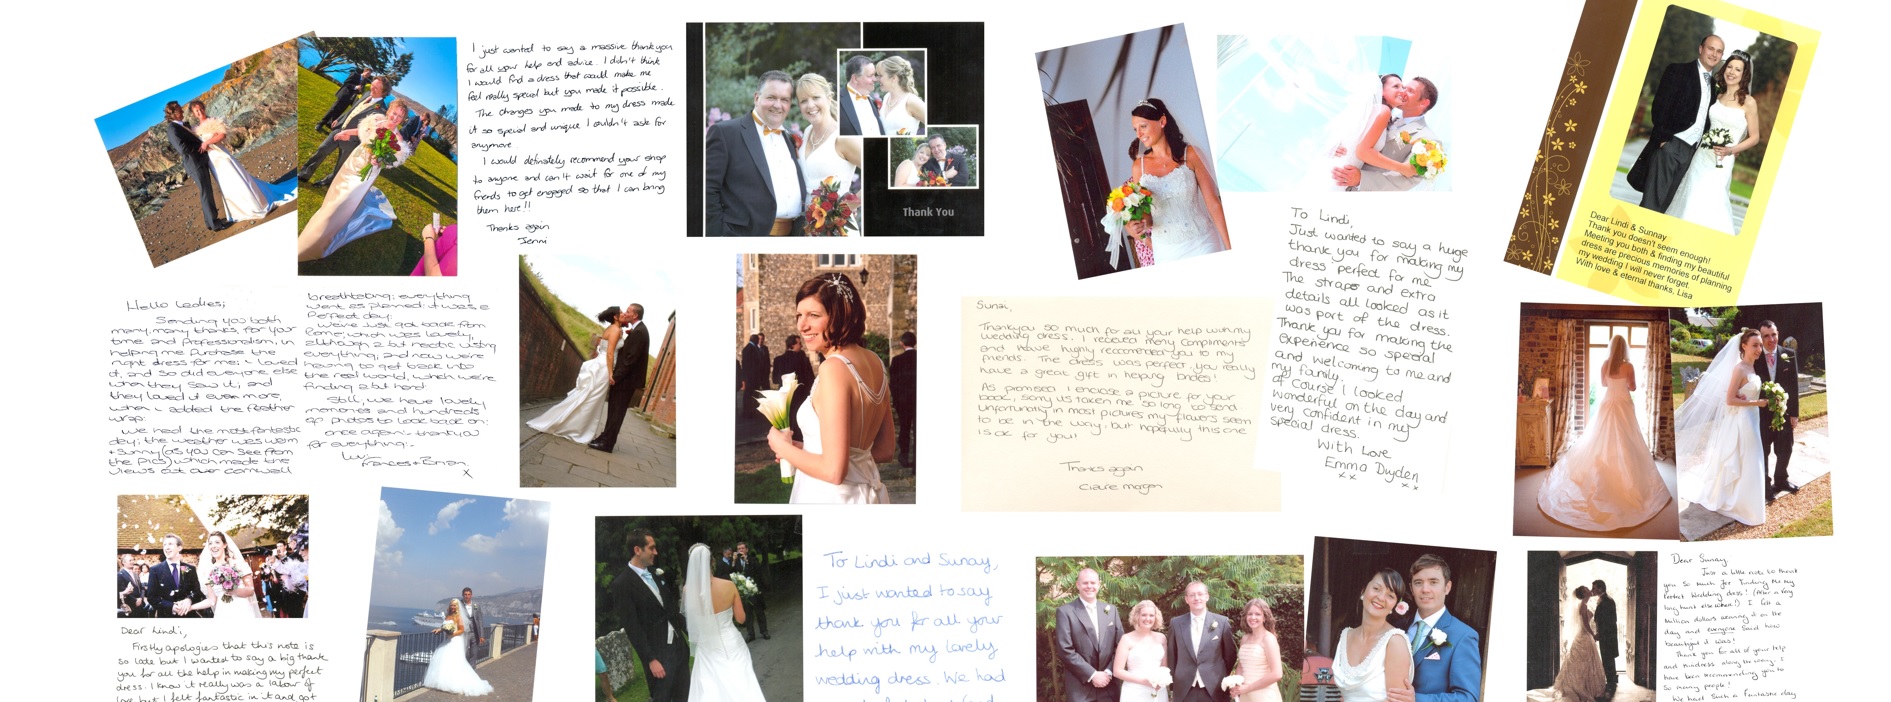 I just wanted to say a massive thankyou
for all your help and advice. I didn't think
I would find a dress that could make me
feel really special but you made it possible.
The changes you made to my dress made
it so special and unique I couldn't ask for
anymore.
I would definately recommend your shop
to anyone and can't wait for one of my
friends to get engaged so that I can bring
them here!!
Thanks again
Jenni
Thank You
Dear Lindi & Sunnay
Thank you doesn't seem enough!
Meeting you both & finding my beautiful
dress are precious memories of planning
my wedding I will never forget.
With love & eternal thanks, Lisa
To Lindi,
Just wanted to say a huge
thank you for making my
dress perfect for me.
The straps and extra
details all looked as it
was part of the dress.
Thank you for making the
experience so special
and welcoming to me and
my family.
Of course I looked
wonderful on the day and
very confident in my
special dress.
With Love
Emma Dryden
x x
x x
Hello Ladies;
Sending you both
many, many thanks, for your
time and Professionalism, in
helping me purchase the
right dress for me; I loved
it, and so did everyone else
when they saw it; and
they loved it even more,
when I added the feather
wrap.
We had the most fantastic
day; the weather was warm
+ sunny (as you can see from
the pics) which made the
views out over cornwall
breathtaking; everything
went as planned; it was a
Perfect day.
We've just got back from
Rome, which was lovely,
although a bit hectic visiting
everything, and now we're
having to get back into
the real world, which we're
finding a bit hard.
Still, we have lovely
memories and hundreds
of photos to look back on;
once again; thankyou
for everything;
Luv
Frances + Brian.
x
Sunai,
Thankyou so much for all your help with my
wedding dress. I received many compliments
and have highly reccomended you to my
friends. The dress was perfect, you really
have a great gift in helping brides!
As promised I enclose a picture for your
book, sorry its taken me so long to send.
Unfortunatly in most pictures my flowers seem
to be in the way. but hopefully this one
is ok for you!
Thanks again
Claire Morgan
Dear Lindi,
Firstly apologies that this note is
so late but I wanted to say a big thank
you for all the help in making my perfect
dress. I know it really was a labour of
love but I felt fantastic in it and got
To Lindi and Sunay,
I just wanted to say
thank you for all your
help with my lovely
wedding dress. We had
Dear Sunay
Just a little note to thank
you so much for finding me my
perfect Wedding dress! (After a very
long hunt elsewhere!) I felt a
Million dollars wearing it on the
day and everyone said how
beautiful it was!
Thank you for all of your help
and kindness along the way. I
have been recommending you to
so many people!
We had such a fantastic day